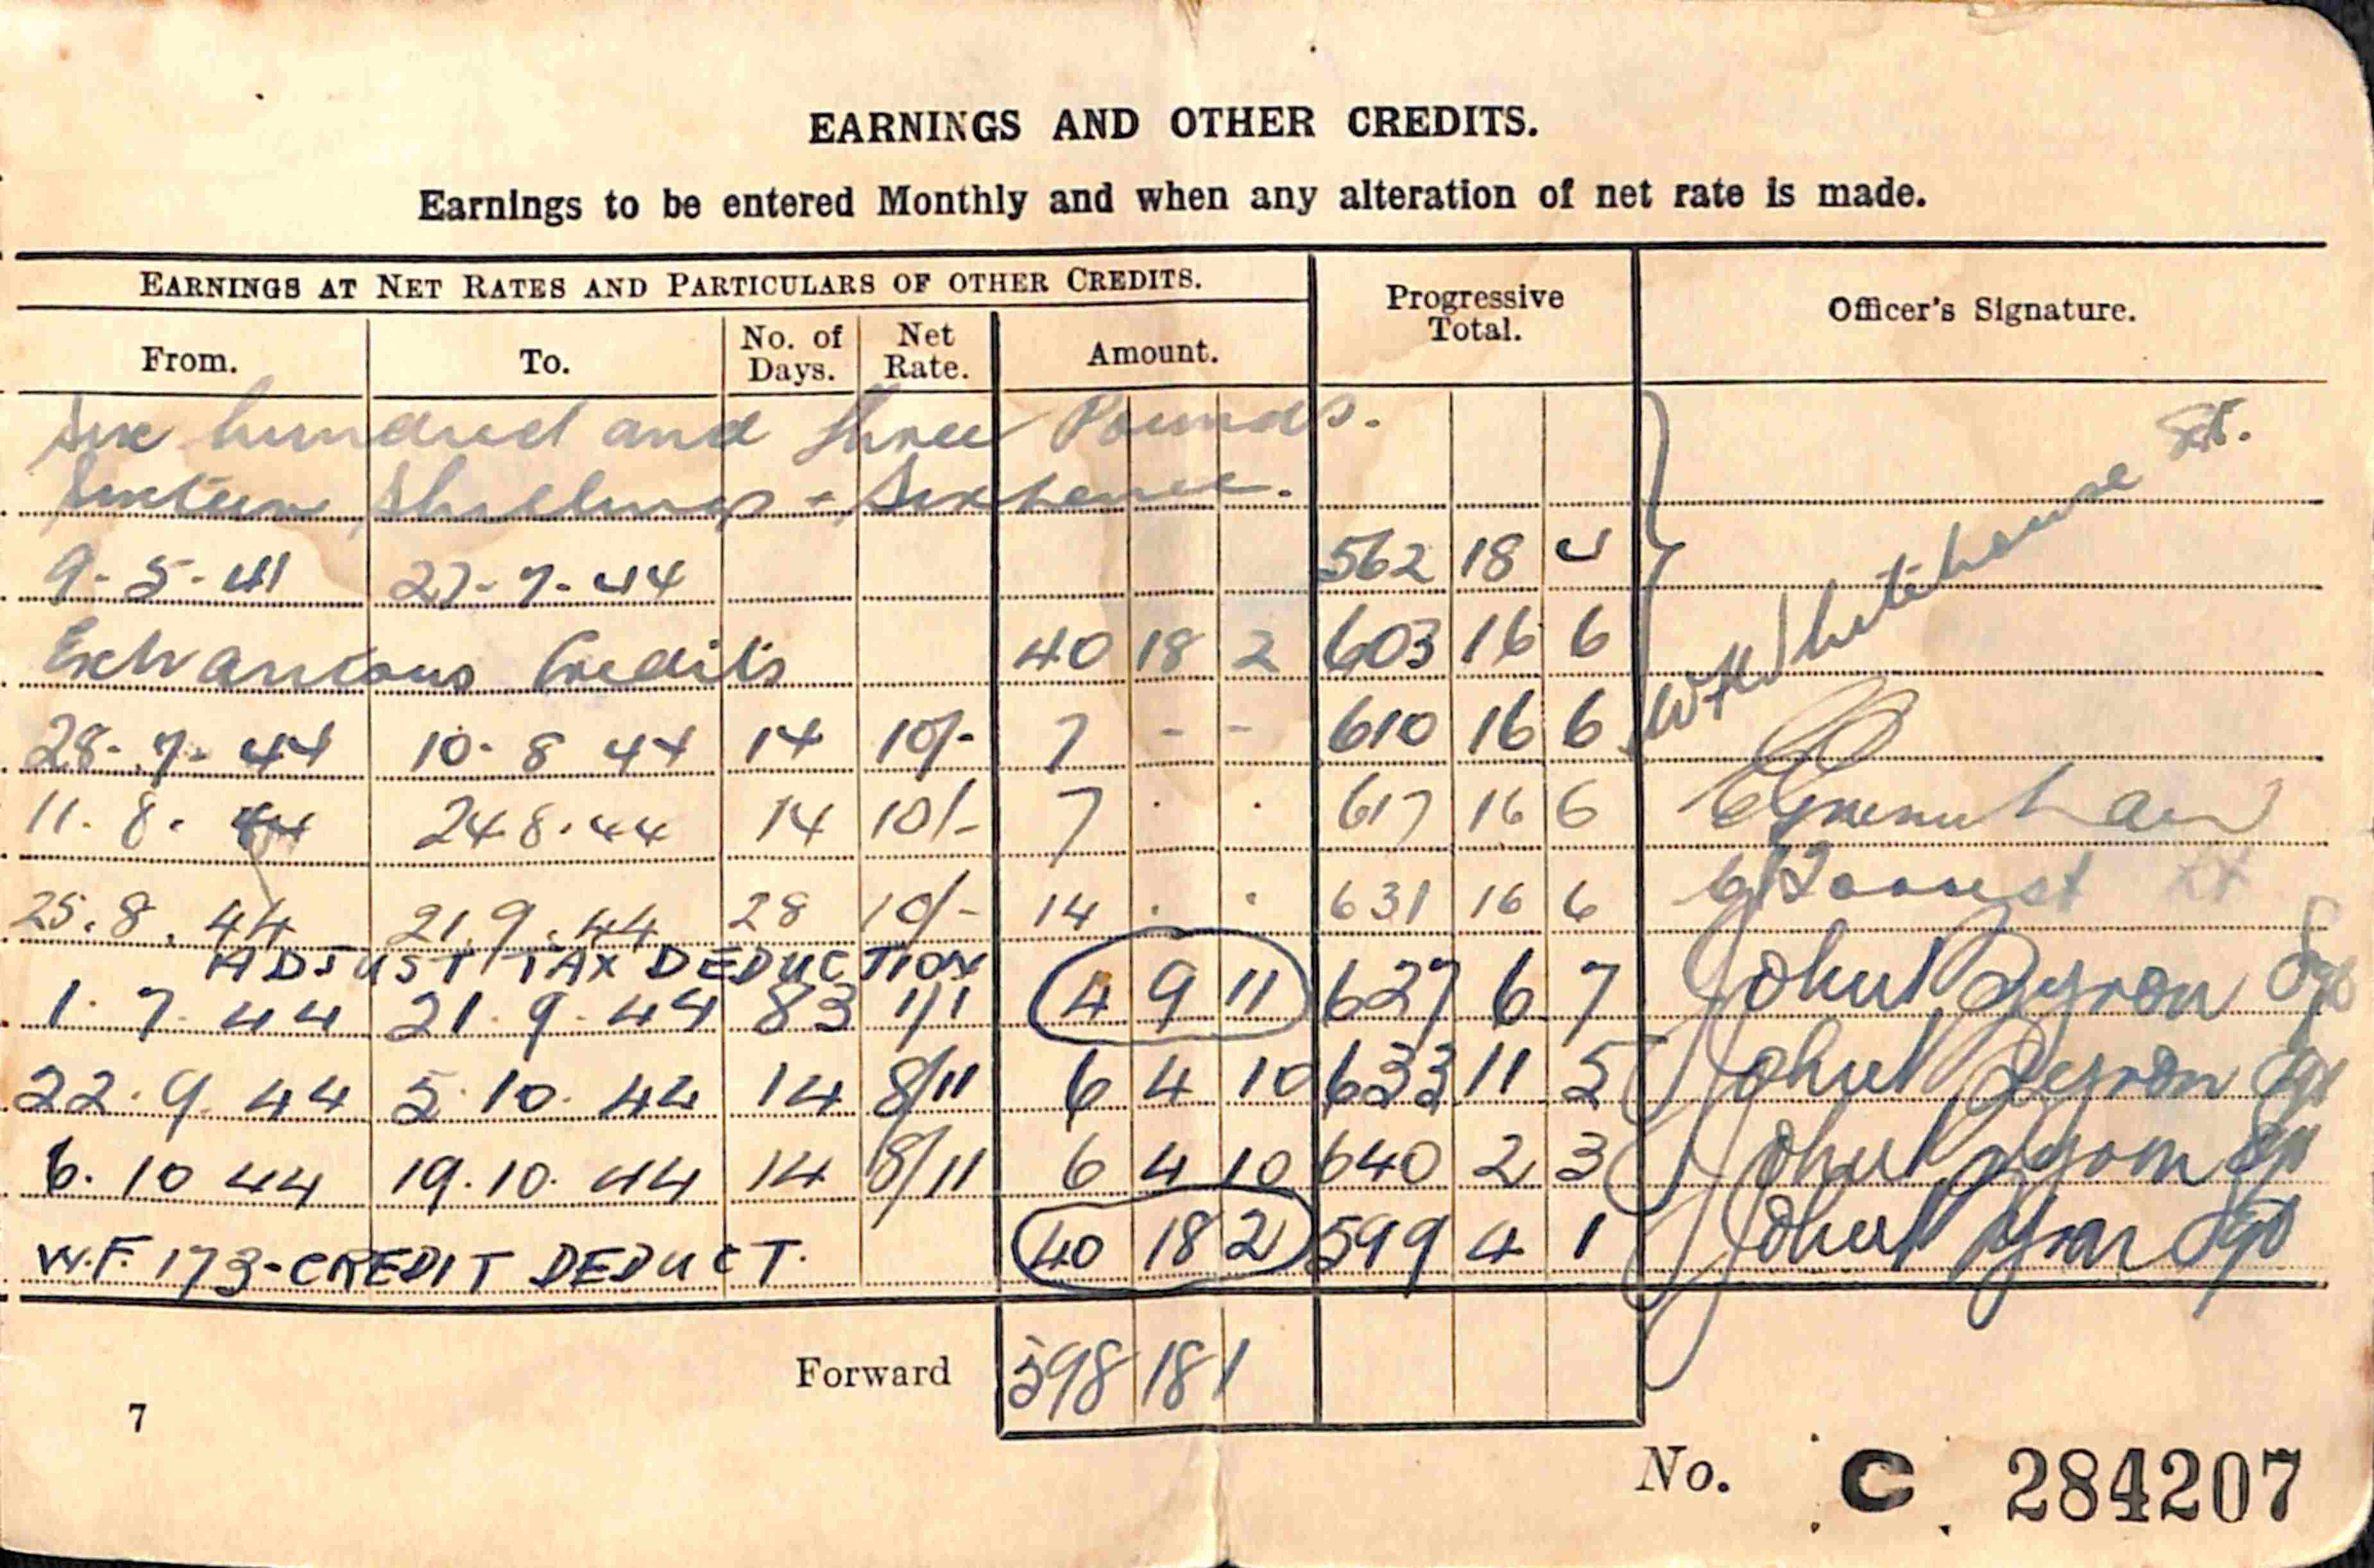 EARNINGS AND OTHER CREDITS.
Earnings to be entered Monthly and when any alteration of net rate is made.
EARNINGS AT NET RATES AND PARTICULARS OF OTHER CREDITS. Progressive Total. Officer's Signature.
From. To. No. of Days. Net Rate. Amount.
Six hundred and three Pounds.
Sixteen Shillings - Sixpence.
9-5-41 27-7-44 562 18 4
Extraneous Credits 40 18 2 603 16 6 Whitehouse Sgt.
28-7-44 10-8 44 14 10/- 7 - - 610 16 6
11. 8. 44 24 8.44 14 10/- 7 . . 617 16 6
25.8.44 21.9.44 28 10/- 14 . . 631 16 6
ADJUST TAX DEDUCTION
1.7.44 21.9.44 83 1/1 4 9 11 627 6 7 John
22.9.44 5.10.44 14 8/11 6 4 10 633 11 5 John
6.10 44 19.10.44 14 8/11 6 4 10 640 2 3 John
W.F. 173-CREDIT DEDUCT. 40 18 2 599 4 1 John
Forward 598 18 1
7
No. C 284207